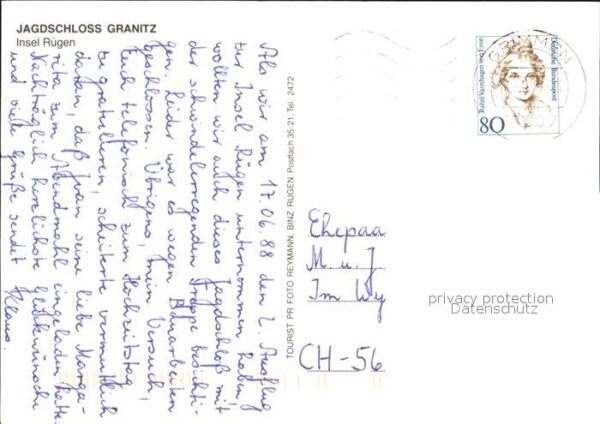 JAGDSCHLOSS GRANITZ
Insel Rügen
Als wir am 17.06.88 den 2. Ausflug
zur Insel Rügen unternommen haben,
wollten wir auch dieses Jagdschloß mit
der schwindelerregenden Treppe besichti-
gen. Leider war es wegen Bauarbeiten
geschlossen. Übrigens, mein Versuch,
Euch telefonisch zum Hochzeitstag
zu gratulieren, scheiterte vermutlich
daran, daß Ivan seine liebe Marga-
rita zum Abendmahl eingeladen hatte.
Nachträglich herzlichste Glückwünsche
und viele Grüße sendet
Klaus.
TOURIST PR FOTO REYMANN, BINZ, RÜGEN, Postfach 35 21, Tel. 2472
GRIMMEN
Deutsche Bundespost
Rahel Varnhagen von Ense
80
Ehepaa
M. u. J
Im Wy
CH-56
privacy protection
Datenschutz